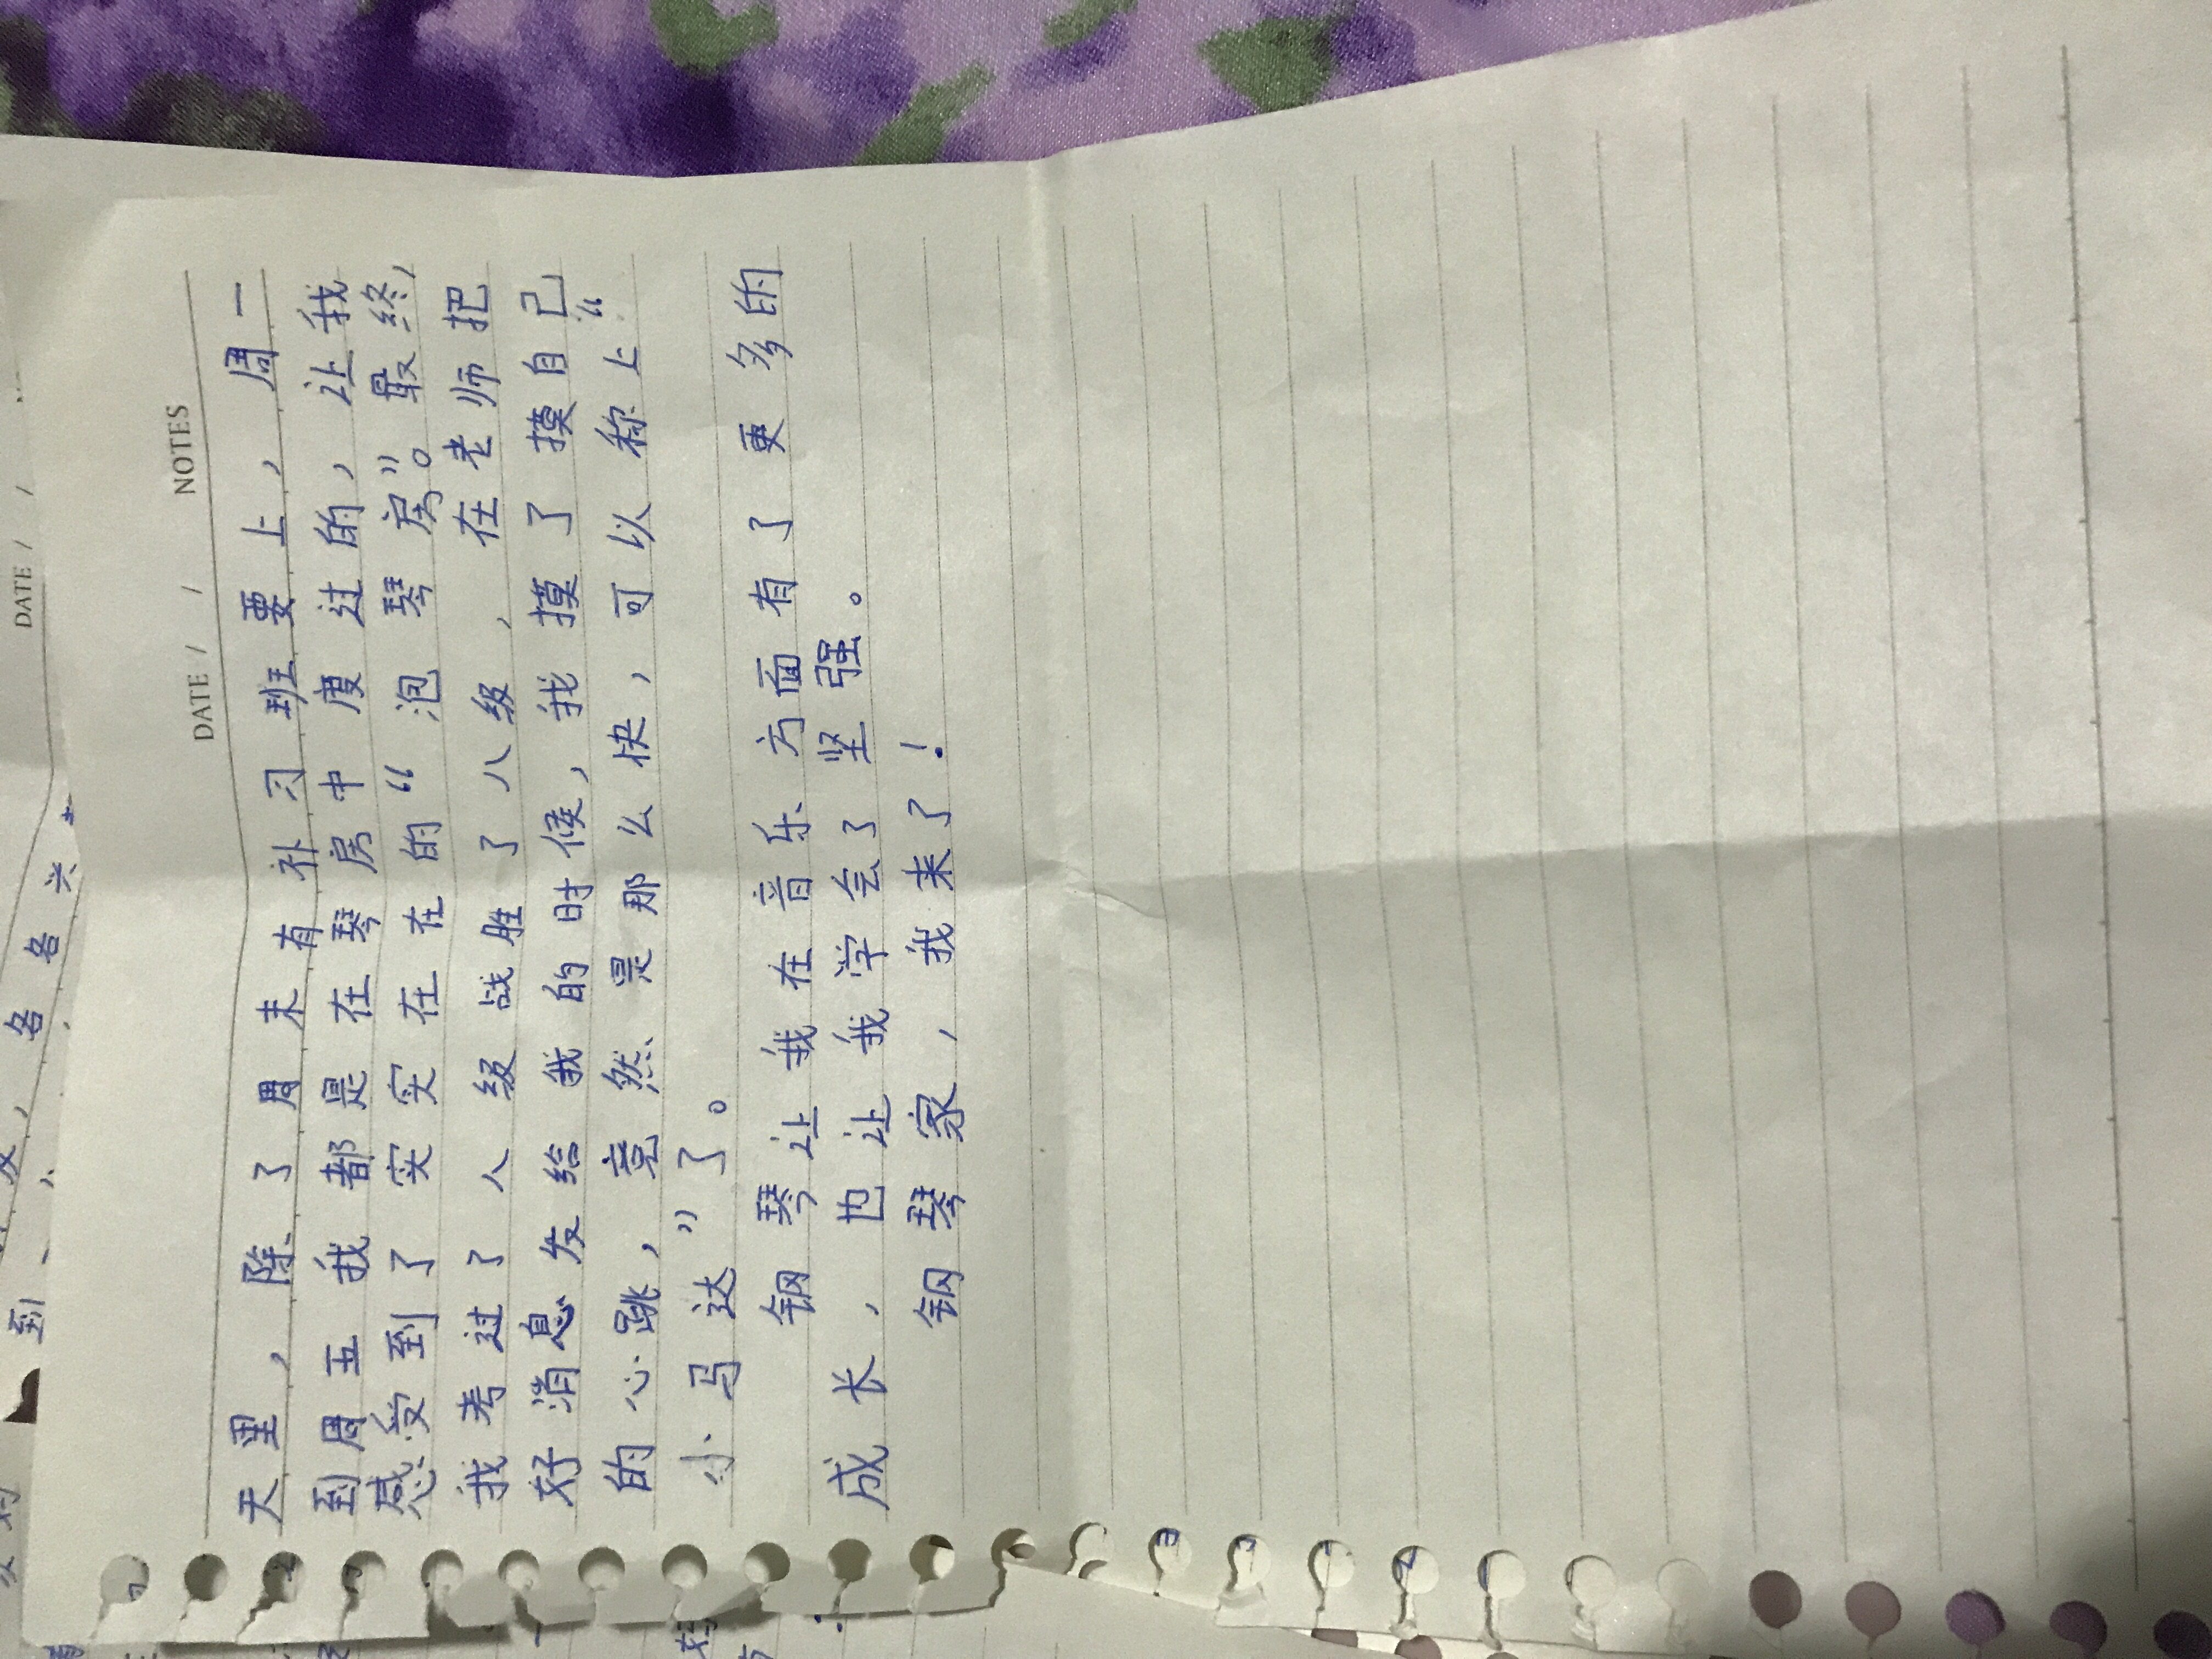 DATE / / NOTES
天里，除了周末有补习班要上，周一
到周五我都是在琴房中度过的，让我
感受到了实实在在的“泡琴房”。最终，
我考过了人级战胜了八级，在老师把
好消息发给我的时候，我摸了摸自己
的心跳，竟然是那么快，可以称上“
小马达”了。
钢琴让我在音乐方面有了更多的
成长，也让我学会了坚强。
钢琴家，我来了！
DATE / /
到
名名各兴